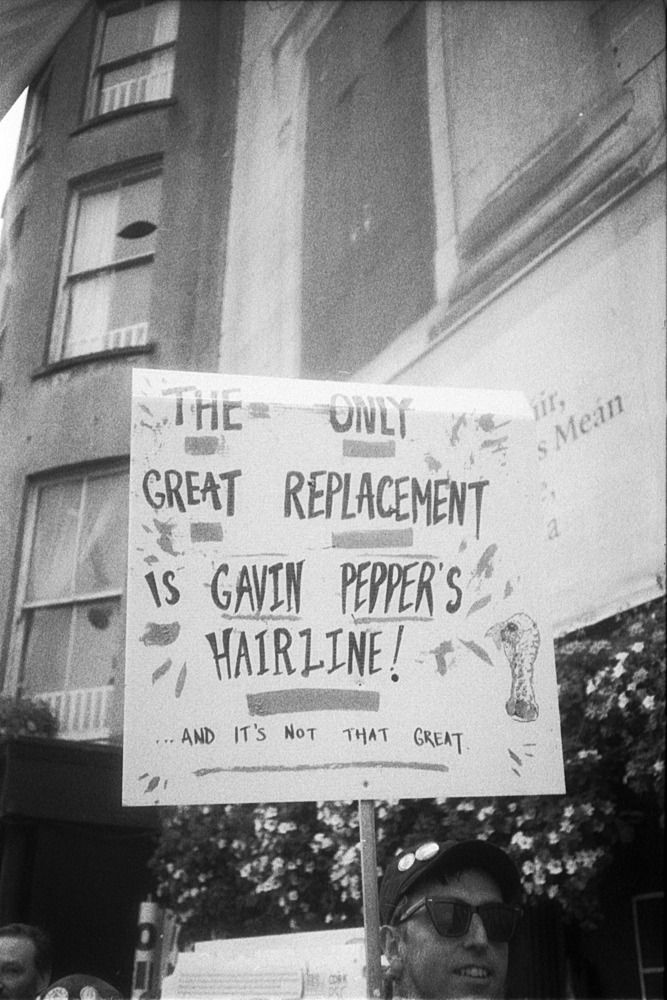 THE ONLY
GREAT REPLACEMENT
IS GAVIN PEPPER'S
HAIRLINE!
...AND IT'S NOT THAT GREAT.
s Meán
a